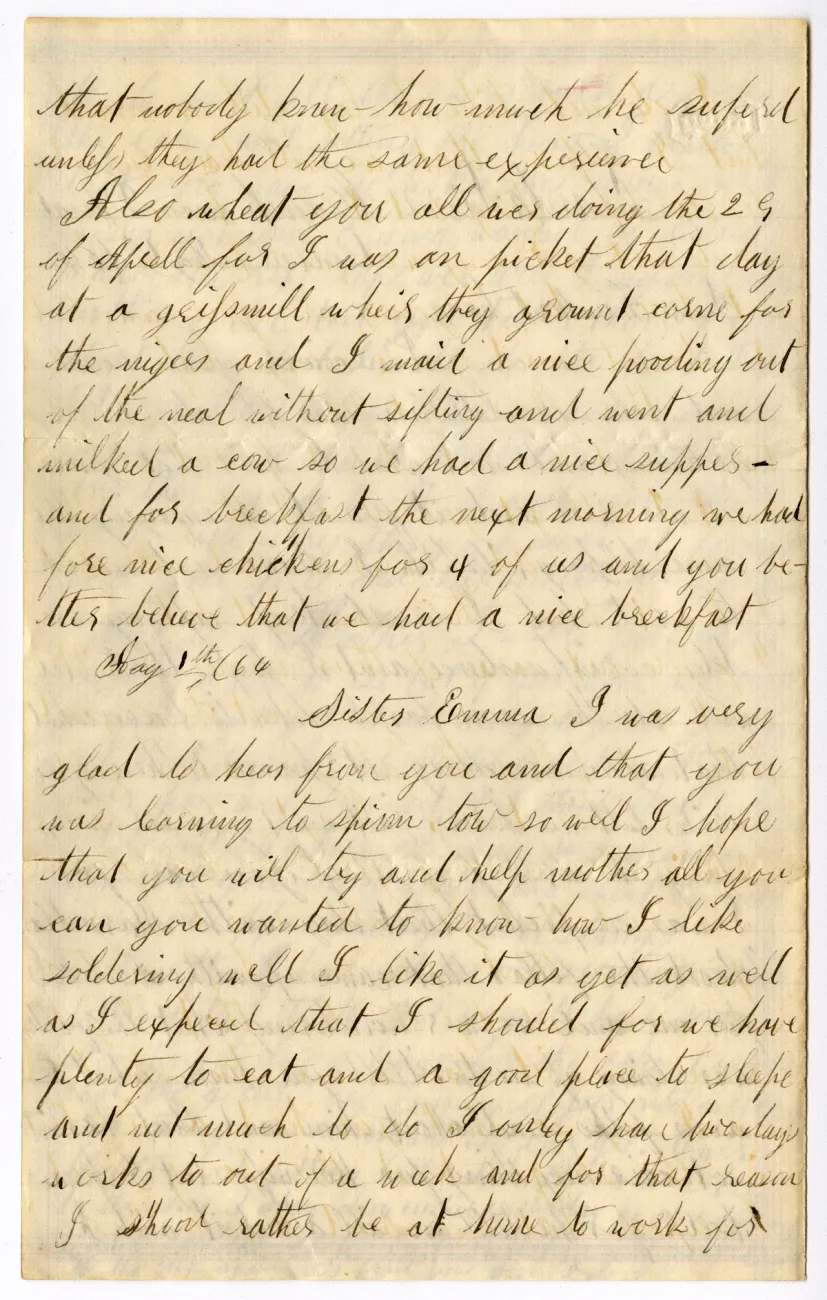 that nobody knew how much he suferd
unless they had the same experience
Also wheat you all wer doing the 29
of Aprell for I was on picket that day
at a grissmill wheir they ground corne for
the nigers and I maid a nice pooding out
of the meal without sifting and went and
milked a cow so we had a nice supper -
and for breekfast the next morning we had
fore nice chickens for 4 of us and you be-
tter believe that we had a nice breekfast
May 1th / 64
Sister Emma I was very
glad to hear from you and that you
was learning to spinn tow so well I hope
that you will try and help mother all you
can you wanted to know how I like
soldering well I like it as yet as well
as I expected that I should for we have
plenty to eat and a good place to sleepe
and not much to do I onley have two days
works to out of a week and for that reason
I shood rather be at home to work for